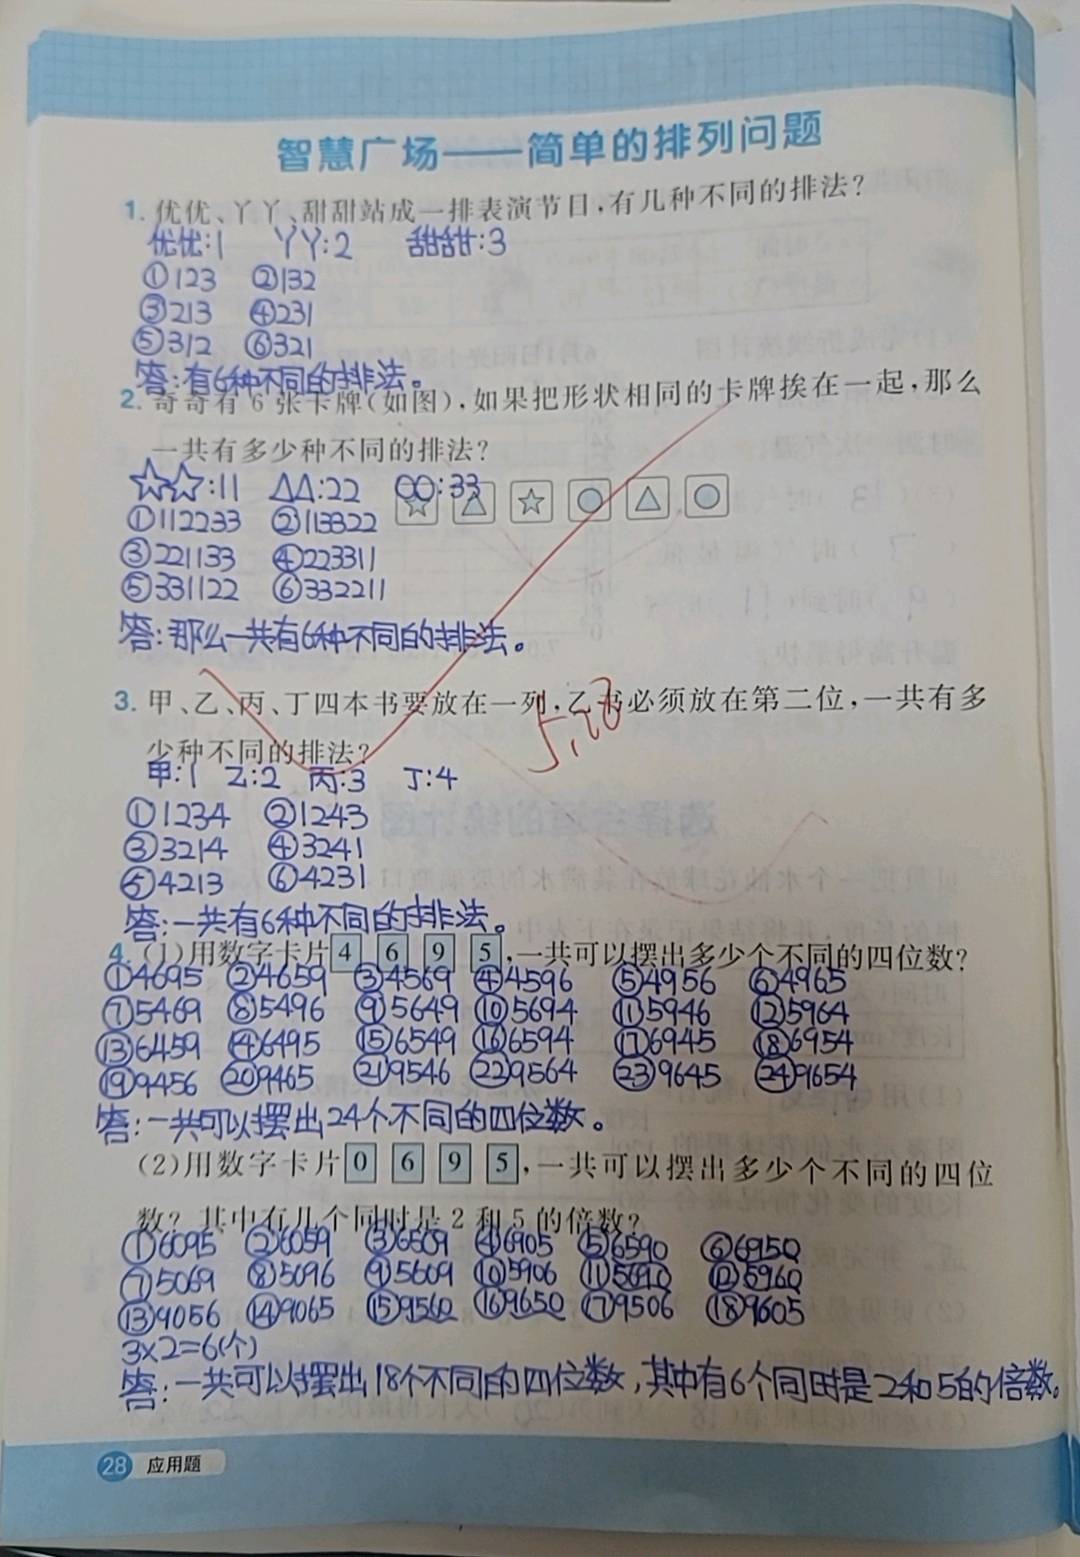 智慧广场——简单的排列问题
1. 优优、丫丫、甜甜站成一排表演节目,有几种不同的排法?
优优:1 丫丫:2 甜甜:3
①123 ②132
③213 ④231
⑤312 ⑥321
答:有6种不同的排法。
2. 奇奇有6张卡牌(如图),如果把形状相同的卡牌挨在一起,那么
一共有多少种不同的排法?
☆☆:11 △△:22 ○○:33
①112233 ②113322
③221133 ④223311
⑤331122 ⑥332211
答:那么一共有6种不同的排法。
3. 甲、乙、丙、丁四本书要放在一列,乙书必须放在第二位,一共有多
少种不同的排法?
5,28
甲:1 乙:2 丙:3 丁:4
①1234 ②1243
③3214 ④3241
⑤4213 ⑥4231
答:一共有6种不同的排法。
4. (1)用数字卡片 4 6 9 5 ,一共可以摆出多少个不同的四位数?
①4695 ②4659 ③4569 ④4596 ⑤4956 ⑥4965
⑦5469 ⑧5496 ⑨5649 ⑩5694 ⑪5946 ⑫5964
⑬6459 ⑭6495 ⑮6549 ⑯6594 ⑰6945 ⑱6954
⑲9456 ⑳9465 ㉑9546 ㉒9564 ㉓9645 ㉔9654
答:一共可以摆出24个不同的四位数。
(2)用数字卡片 0 6 9 5 ,一共可以摆出多少个不同的四位
数?其中有几个同时是2和5的倍数?
①6095 ②6059 ③6509 ④6905 ⑤6590 ⑥6950
⑦5069 ⑧5096 ⑨5609 ⑩5906 ⑪5690 ⑫5960
⑬9056 ⑭9065 ⑮9560 ⑯9650 ⑰9506 ⑱9605
3×2=6(个)
答:一共可以摆出18个不同的四位数,其中有6个同时是2和5的倍数。
28 应用题